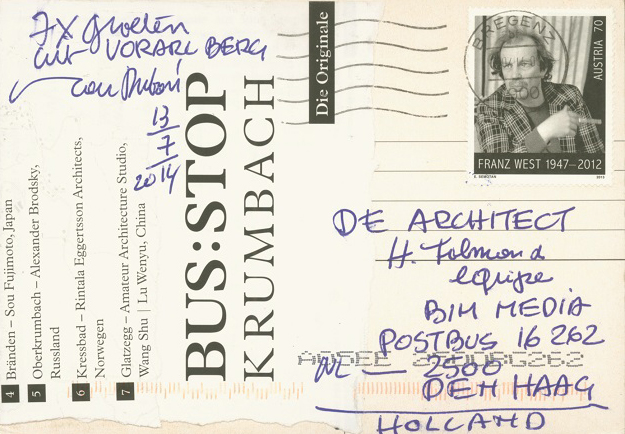 7x groeten
uit VORARLBERG
13
7
2014
Die Originale
BUS:STOP
KRUMBACH
4 Bränden – Sou Fujimoto, Japan
5 Oberkrumbach – Alexander Brodsky,
Russland
6 Kressbad – Rintala Eggertsson Architects,
Norwegen
7 Glatzegg – Amateur Architecture Studio,
Wang Shu | Lu Wenyu, China
BREGENZ
AUSTRIA 70
FRANZ WEST 1947–2012
2013
DE ARCHITECT
H. Tilmond
equipe
BIM MEDIA
POSTBUS 16 262
NL — 2500
DEN HAAG
HOLLAND